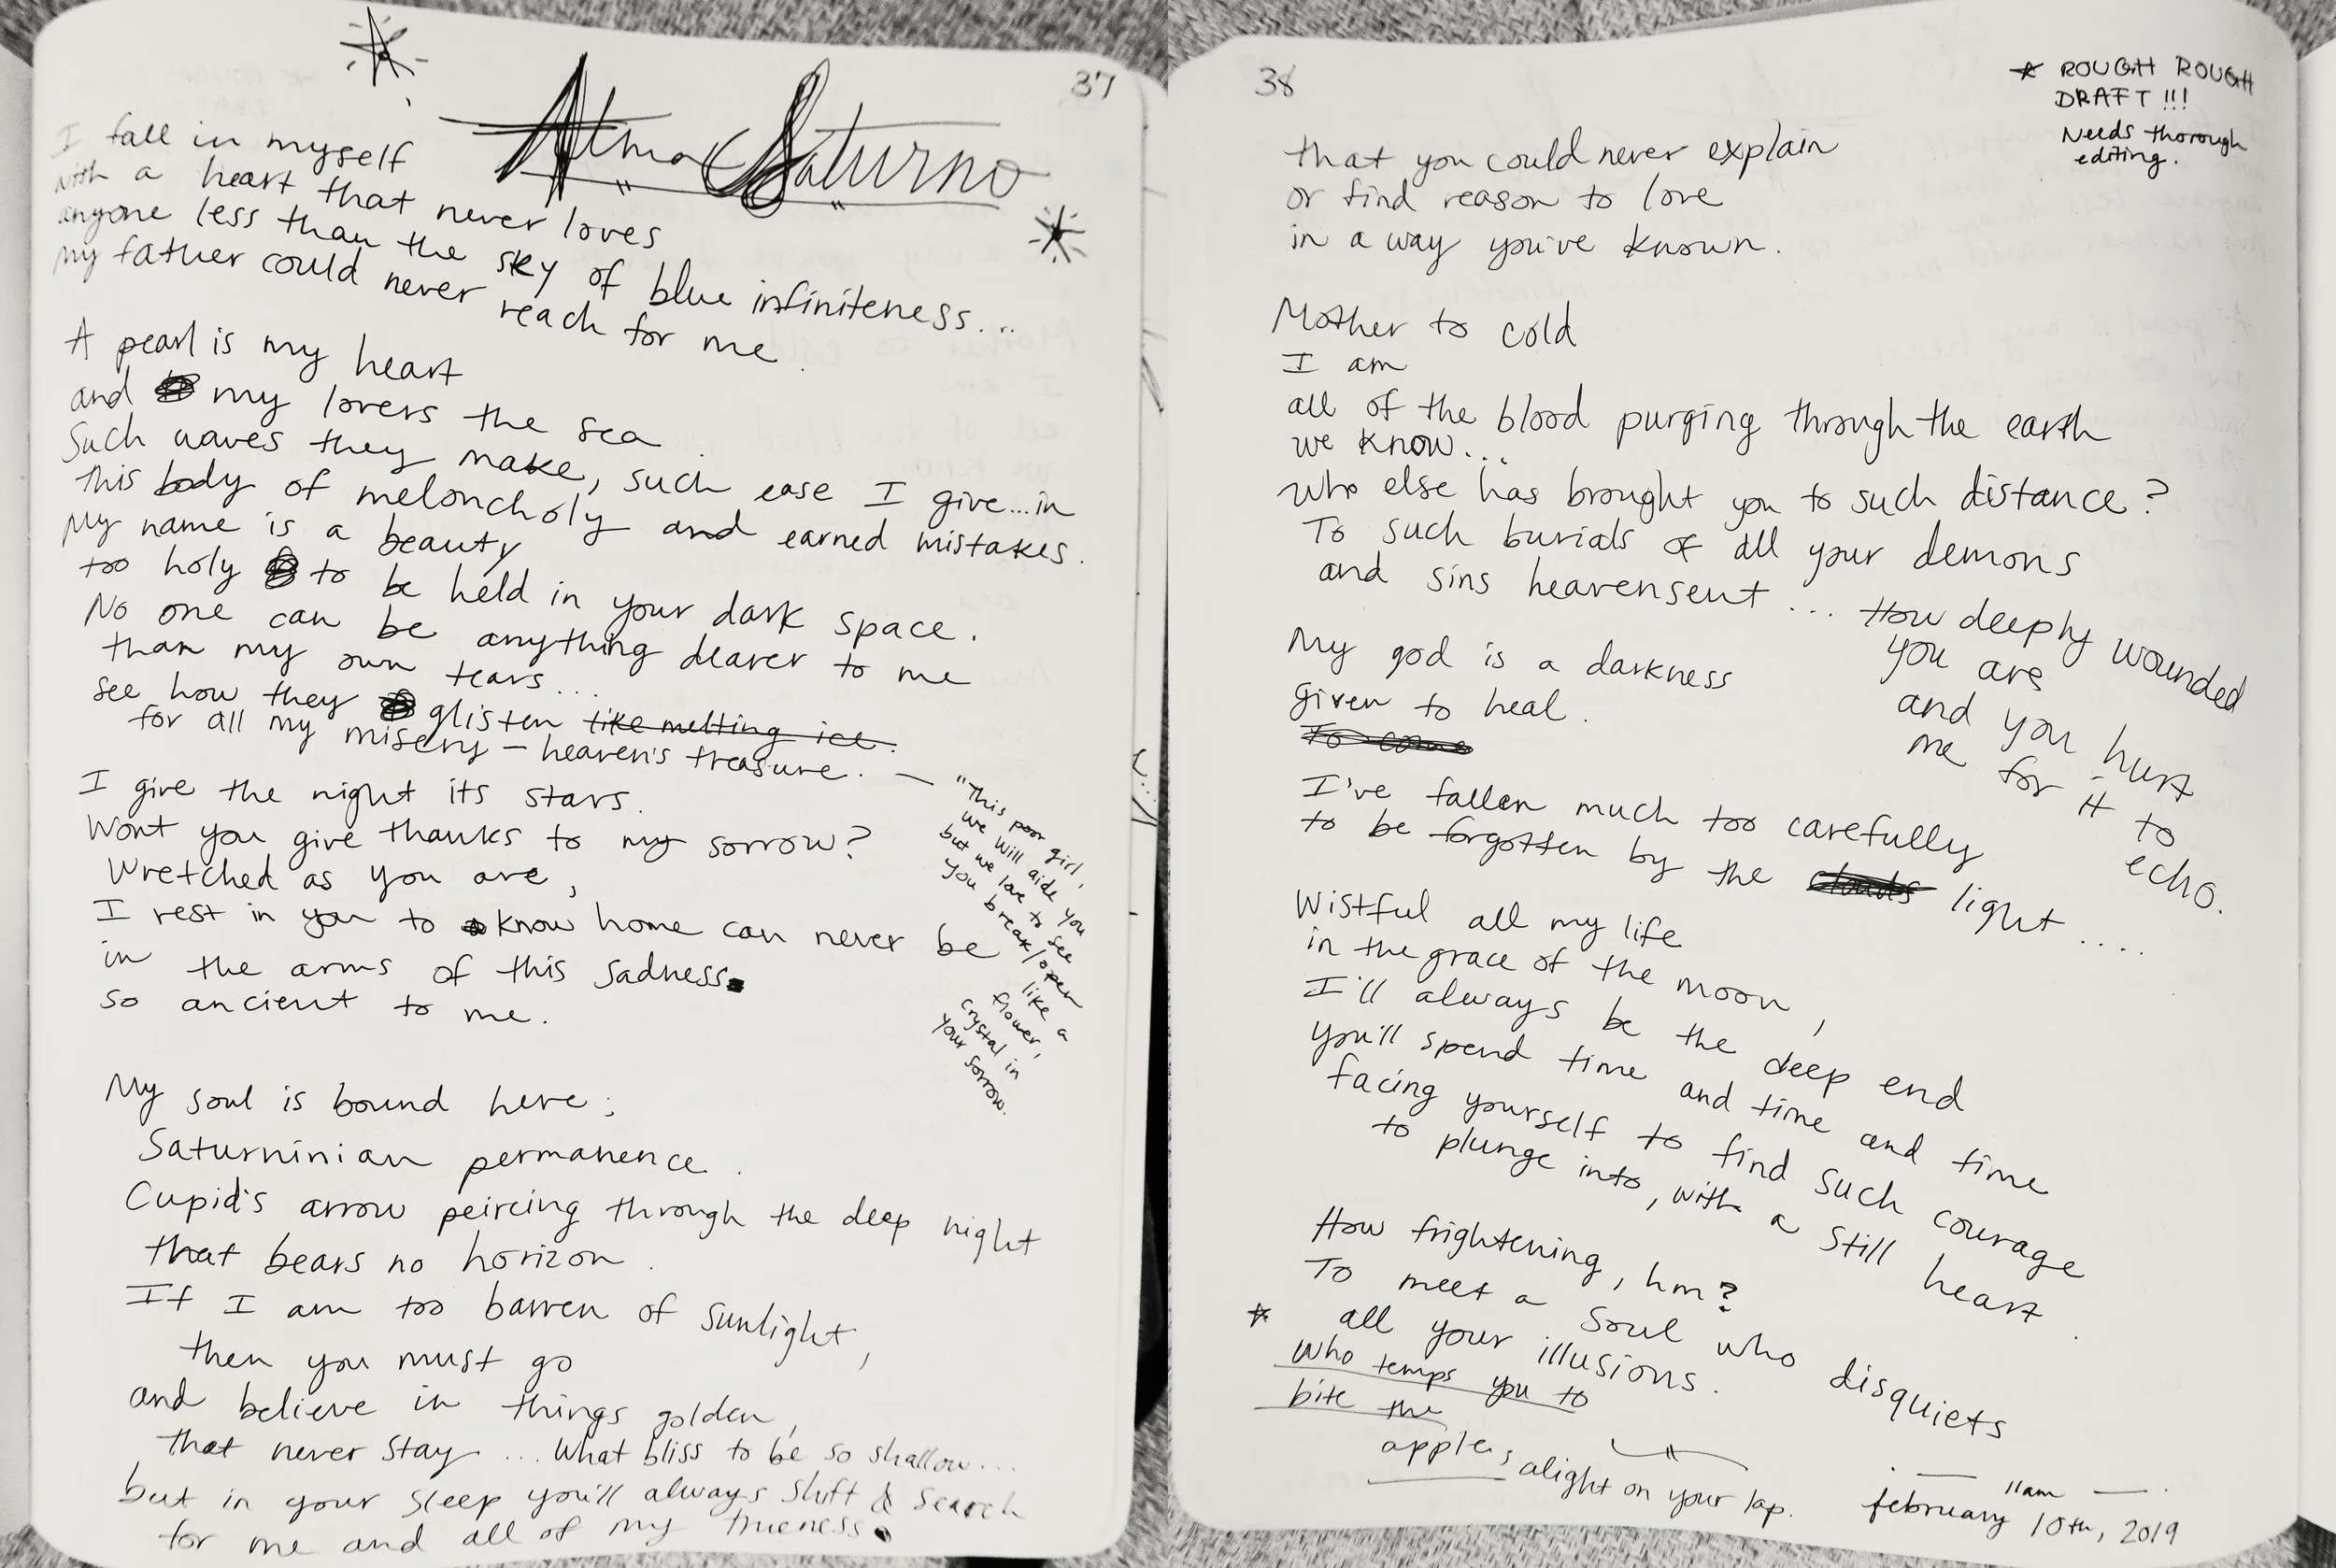 37
Alma Saturno
I fall in myself
with a heart that never loves
anyone less than the sky of blue infiniteness...
my father could never reach for me.
A pearl is my heart
and my lovers the sea
Such waves they make, such ease I give...in
this body of meloncholy and earned mistakes.
My name is a beauty
too holy to be held in your dark space.
No one can be anything dearer to me
than my own tears...
see how they glisten like melting ice.
for all my misery – heaven's treasure. —
"This poor girl,
we will aide you
but we love to see
you break/open
like a
flower,
crystal in
your sorrow.
I give the night its stars.
Wont you give thanks to my sorrow?
Wretched as you are,
I rest in you to know home can never be
in the arms of this sadness
so ancient to me.
My soul is bound here;
Saturninian permanence.
Cupid's arrow peircing through the deep night
that bears no horizon.
If I am too barren of sunlight,
then you must go
and believe in things golden,
that never stay ... What bliss to be so shallow...
but in your sleep you'll always shift & search
for me and all of my trueness.
38
* ROUGH ROUGH
DRAFT !!!
Needs thorough
editing.
that you could never explain
or find reason to love
in a way you've known.
Mother to cold
I am
all of the blood purging through the earth
we know...
who else has brought you to such distance?
To such burials of all your demons
and sins heavensent ... How deeply wounded
you are
and you hurt
me for it to
echo.
My god is a darkness
given to heal.
To come
I've fallen much too carefully
to be forgotten by the clouds light ....
Wistful all my life
in the grace of the moon,
I'll always be the deep end
you'll spend time and time and time
facing yourself to find such courage
to plunge into, with a still heart.
How frightening, hm?
To meet a soul who disquiets
* all your illusions.
Who temps you to
bite the
apple, alight on your lap.
11am
february 10th, 2019